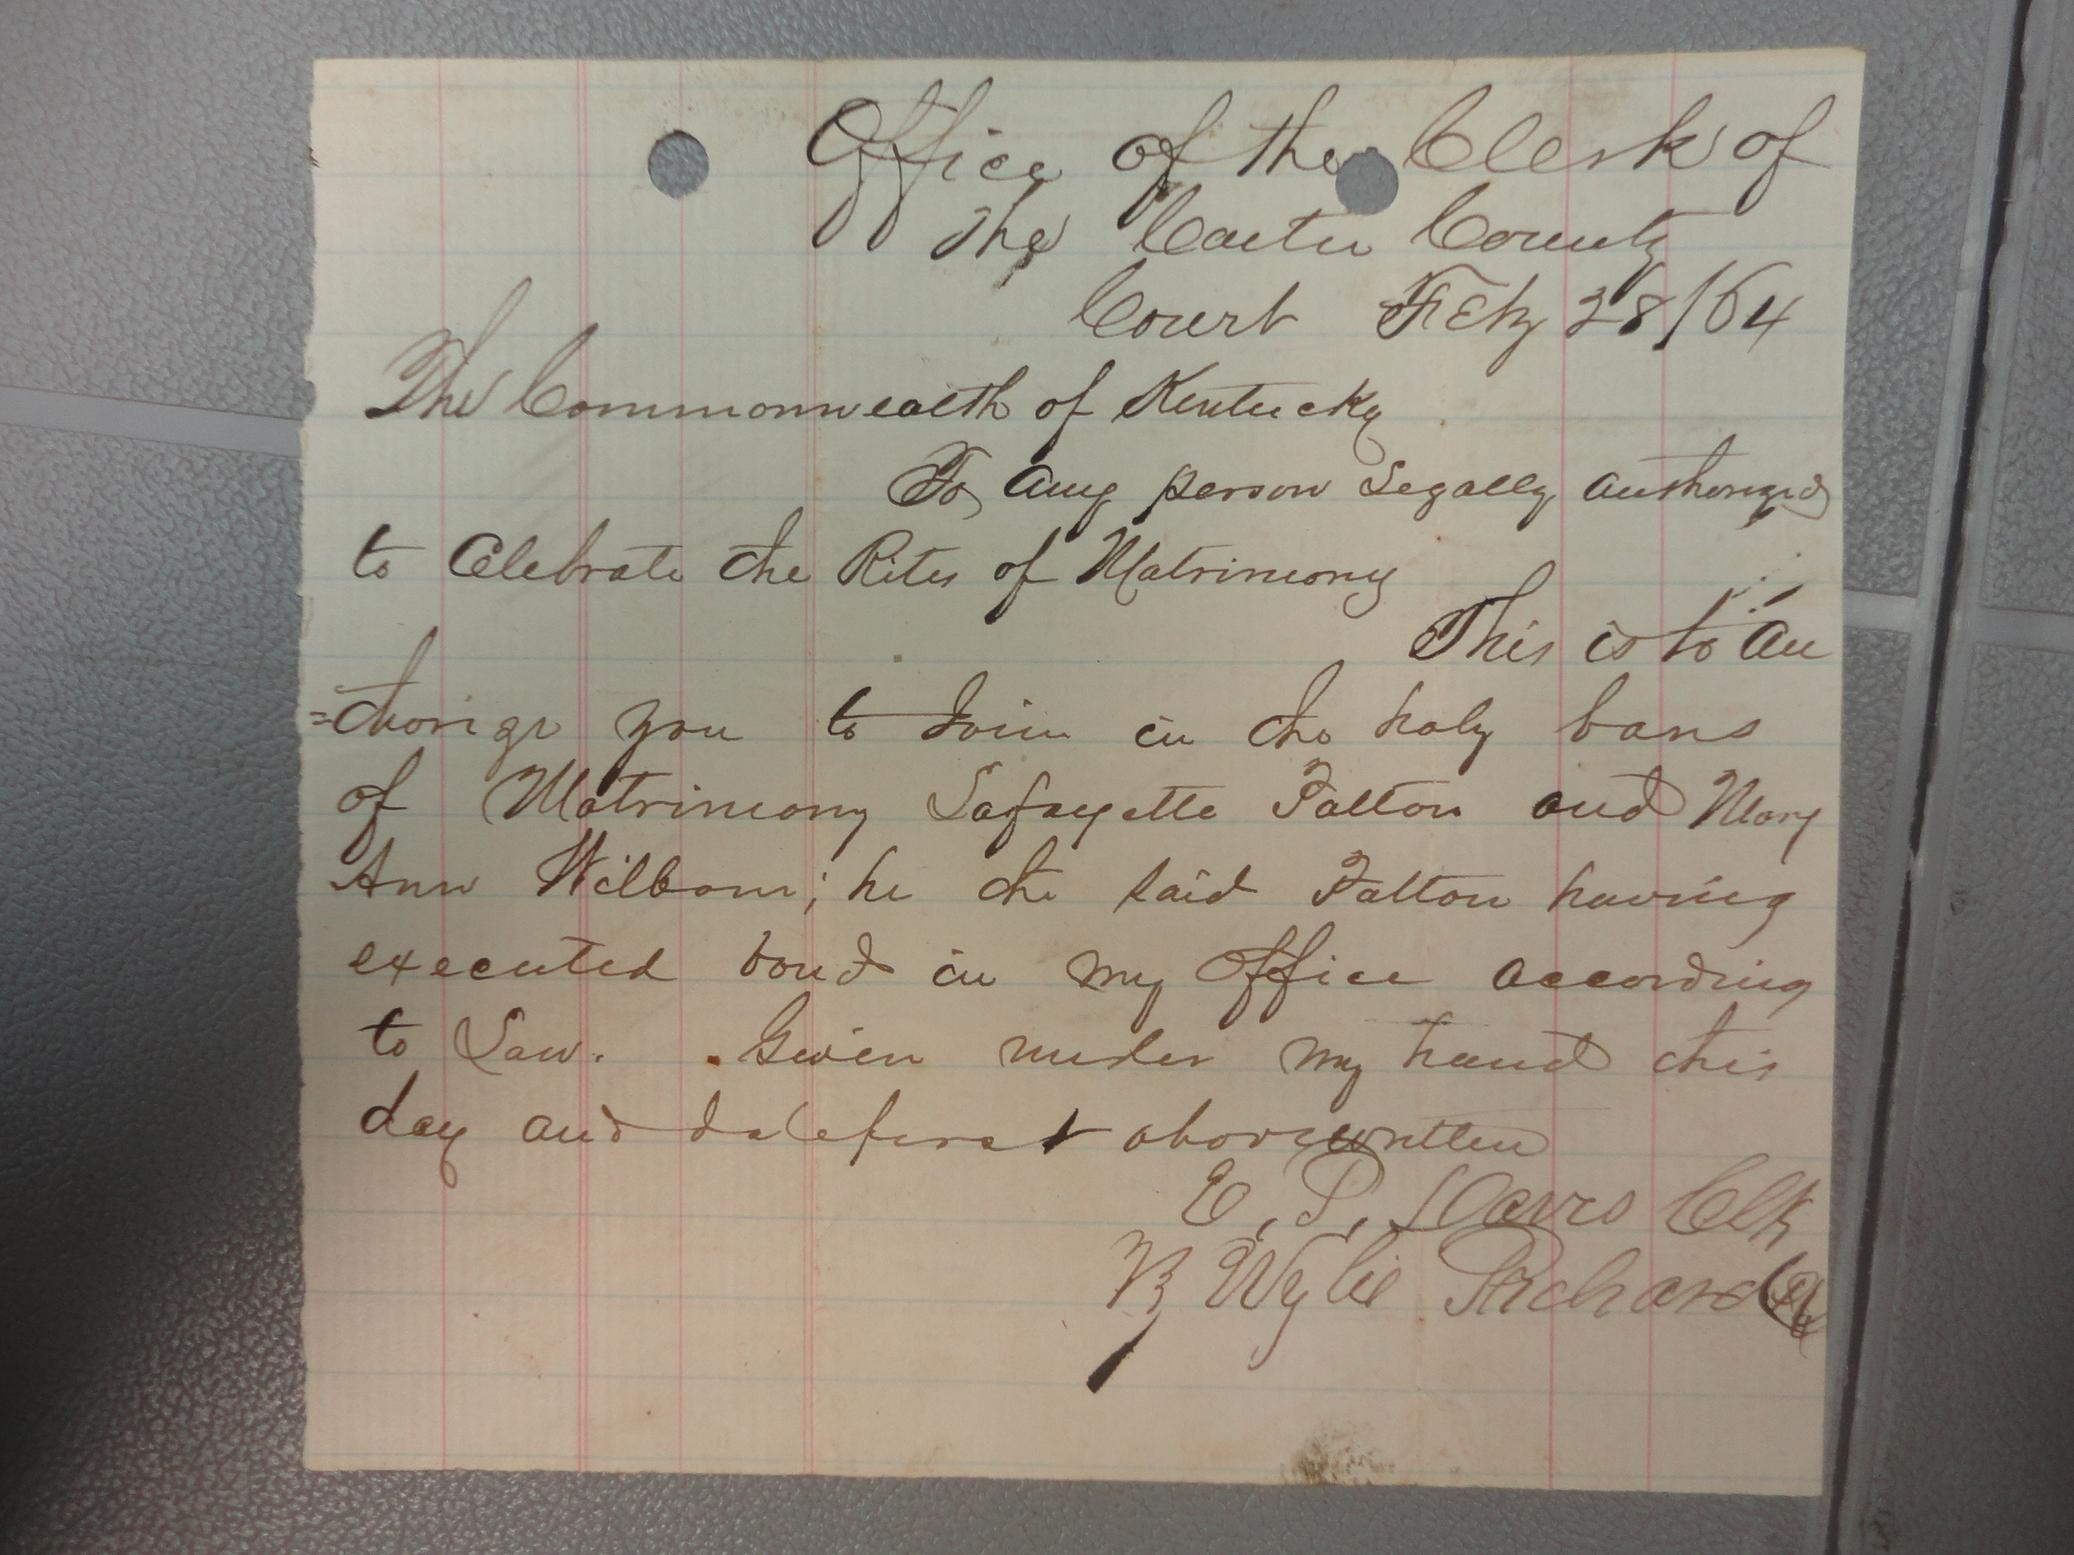 Office of the Clerk of
The Carter County
Court Feby 28/64
The Commonwealth of Kentucky
To any person Legally authorized
to Celebrate the Rites of Matrimony
This is to au
=thorize you to Join in the holy bans
of Matrimony Lafayette Falton and Mary
Ann Wilborn; he the said Falton having
executed bond in my office according
to Law. Given under my hand this
day and date first above written
E. P. Davis Clk
By Wylie Richards